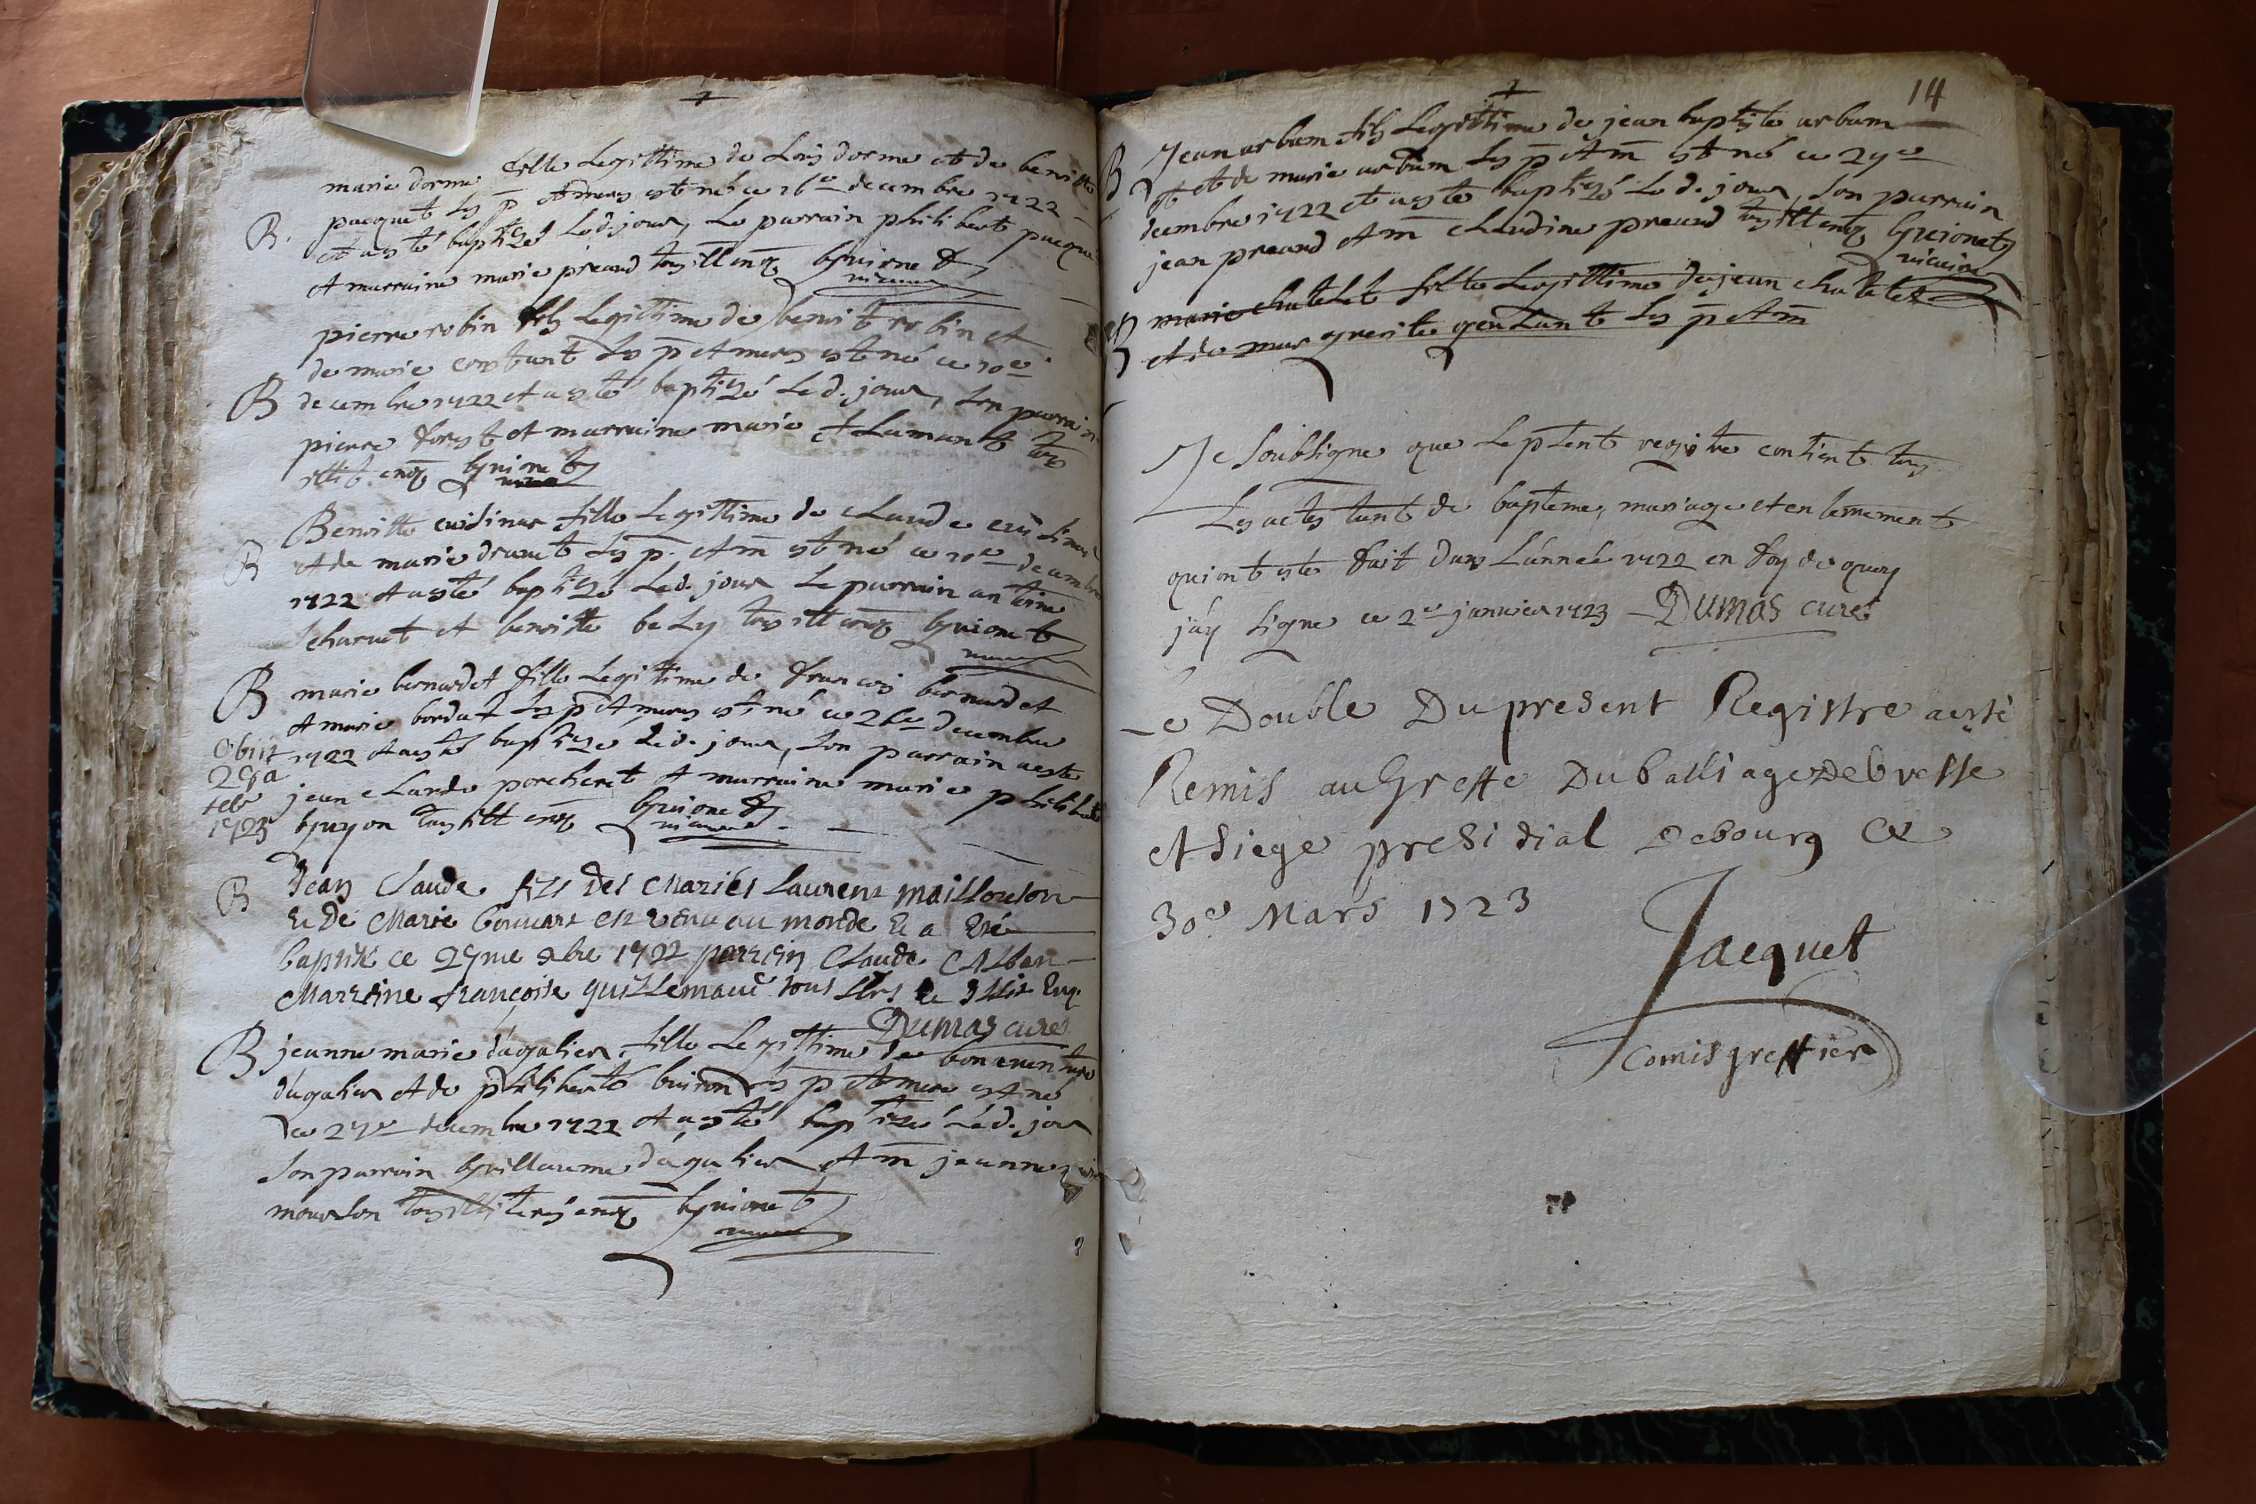 marie dorme fille Legittime de Loüis dorme et de benoitte
pacquet Les p. et meres est né ce 16e decembre 1722
B. et a esté baptizé Led. jour, Le parrain philibert pacquet
et marraine marie preaud tous illit enq. Guionet
vicaire
pierre robin fils Legittime de benoit robin et
de marie constant Les p et meres est né ce 20e
B decembre 1722 et a esté baptizé Led. jour, son parrain
pierre forest et marraine marie tous
illit. enq. Guionet
vicaire
Benoitte cuisinar fille Legittime de claude cuisinar
B et de marie drevet Les p. et m est né ce 20e decembre
1722 et a esté baptizé Led. jour Le parrain antoine
charvet et benoitte bely tous illit enq. Guionet
vicaire
B marie bernardet fille Legitime de francois bernardet
et marie bordat Les p et meres est né ce 26e decembre
1722 et a esté baptizé Led. jour, son parrain a esté
jean claude porcheret et marraine marie philiberte
guyon tous illit enq Guionet
vicaire
Obiit
29a
feb
1723
B Jean Claude fils des Mariés Laurent maillouson
Et De Marie bouvart est venu au monde Et a Eté
baptisé ce 29me xbre 1722 parrein Claude Alban
Marreine françoise guillemaud tous Les illit Enq.
Dumas curé
B jeanne marie dagalier, fille Legittime de bonaventure
dagalier et de philiberte buiron Les p et mere est né
ce 27e decembre 1722 et a esté baptizé Led. jour
son parrain Guillaume dagalier et m jeanne
mourlon tous illiteres enq Guionet
vicaire
14
B Jean arbam fils Legittime de jean baptiste arbam
et de marie arbam Les p et m est né ce 29e
decembre 1722 et a esté baptizé Le d. jour, son parrain
jean preaud et m claudine preaud tous illit enq Guionet
vicaire
B marie chatelet fille Legittime de jean chatelet
et de margueritte Les p et m
Je soubsigne que Le pñt registre contient tous
Les actes tant de bapteme, mariage et enterrement
qui ont esté fait dans L'année 1722 en foy de quoy
j'ay signe ce 2e janvier 1723 Dumas curé
Le Double Du present Registre aesté
Remis au Greffe Du balliage De bresse
et siege presidial De bourg Ce
30e Mars 1723
Jacquet
Comis greffier